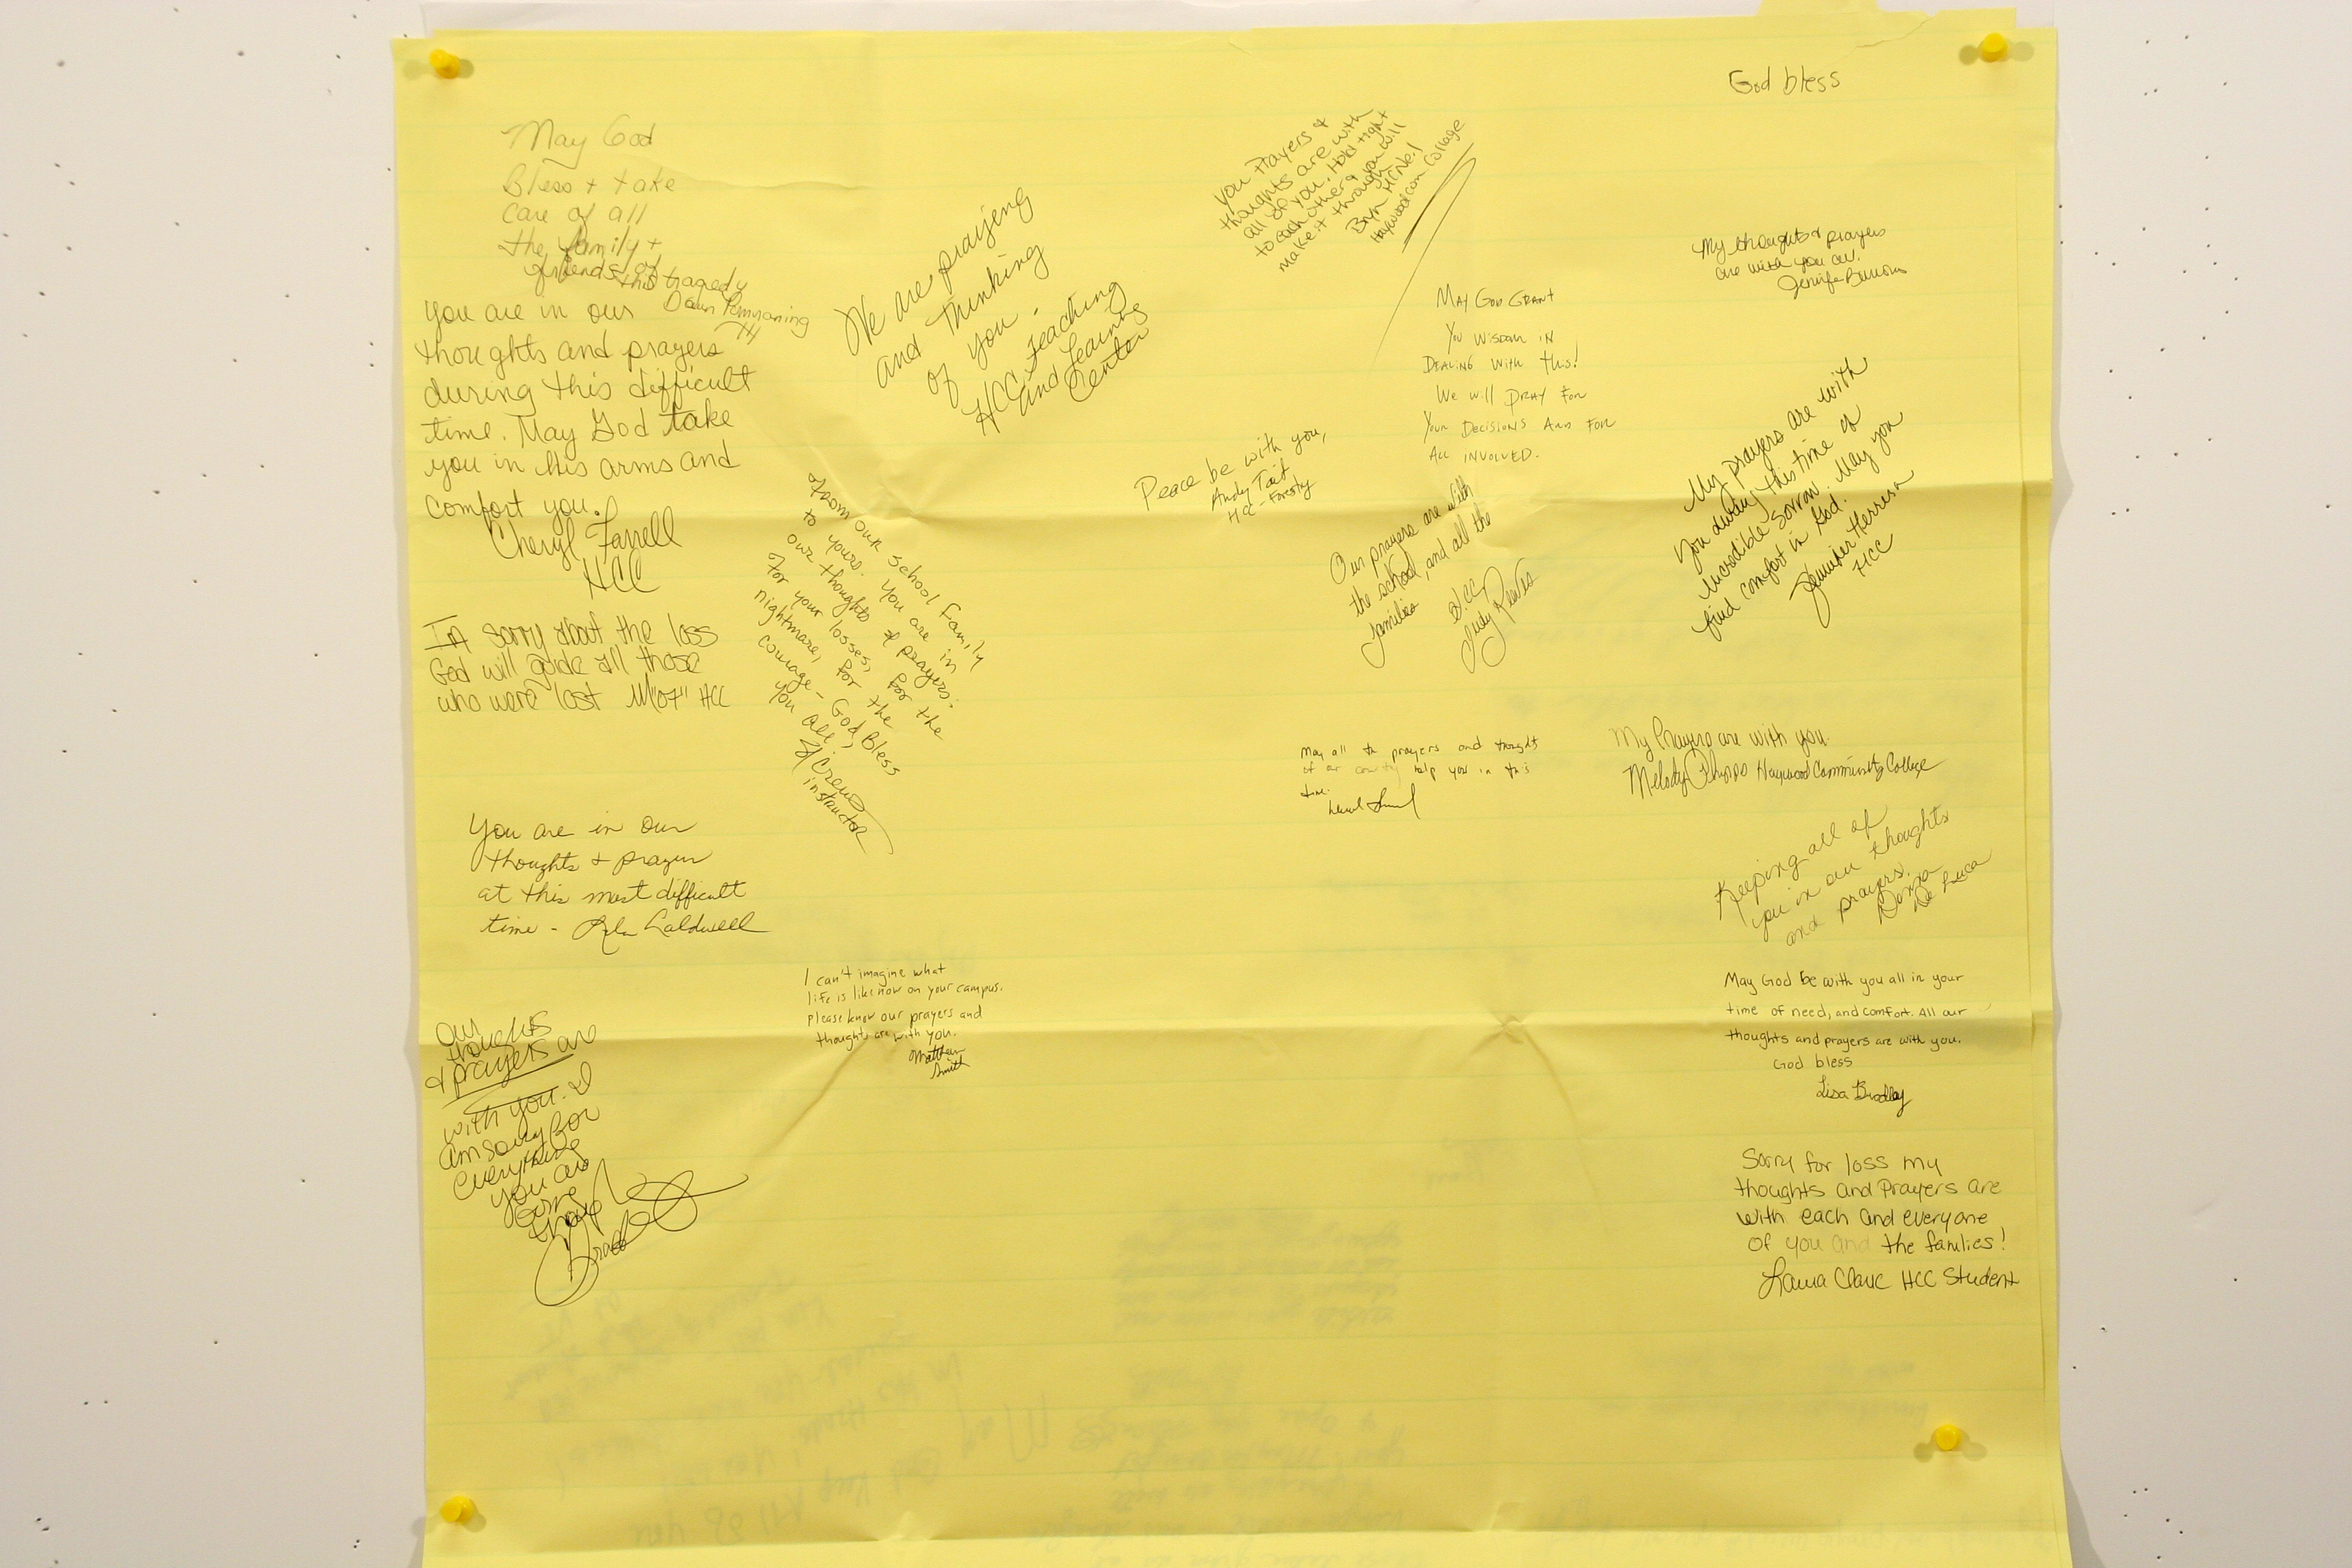 God bless
May God
Bless + take
care of all
the family +
friends of
this tragedy
Dawn
You are in our
thoughts and prayers
during this difficult
time. May God take
you in His arms and
comfort you.
Cheryl Farrell
HCC
sorry about the loss
God will guide all those
who were lost M"07" HCC
You are in our
thoughts + prayers
at this most difficult
time - Caldwell
Our
thoughts
+ prayers are
with you. I
am sorry for
everything
you are
going
We are praijeng
and thinking
of you -
HCC Teaching
and Learning
Center
From our school family
to yours. You are in
our thoughts & prayers.
For your losses, for the
nightmare, for the
courage - God Bless
you all,
instructor
I can't imagine what
life is like now on your campus.
Please know our prayers and
thoughts are with you.
Matthew
Smith
you Prayers &
thoughts are with
all of you. Hold tight
to each other & you will
make it through
Haywood Com College
Peace be with you,
Andy Tait
HCC - Forestry
MAY GOD GRANT
YOU WISDOM IN
DEALING WITH THIS!
WE WILL PRAY FOR
YOUR DECISIONS AND FOR
ALL INVOLVED.
Our prayers are with
the school, and all the
families
HCC
Judy Reeves
May all the prayers and thought
of our county help you in this
time.
My thoughts & prayers
are with you all.
Jennifer
My prayers are with
you during this time of
incredible sorrow. May you
find comfort in God.
Jennifer Herrera
HCC
My Prayers are with you.
Melody Phipps Haywood Community College
Keeping all of
you in our thoughts
and prayers.
Donna
De Luca
May God be with you all in your
time of need, and comfort. All our
thoughts and prayers are with you.
God bless
Lisa Bradley
Sorry for loss my
thoughts and Prayers are
with each and everyone
of you and the families!
Laura Clark HCC Student